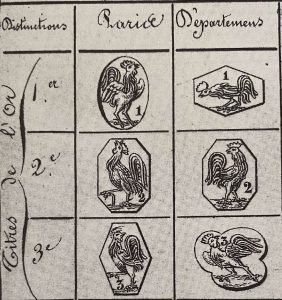 Distinctions Paris Départemens
Titres de l'Or
1.er 1 1
2.e 2 2
3.e 3